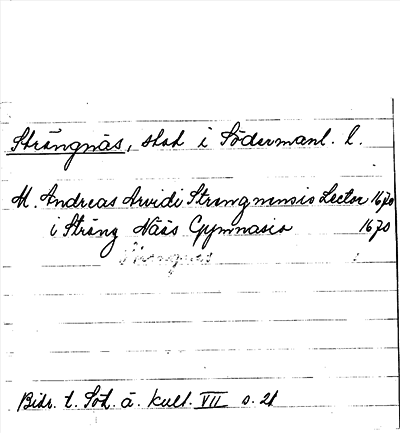 Strängnäs, stad i Södermanl. l.
M. Andreas Arvidi Strengnensis Lector 1670
i Sträng Nääs Gymnasio 1670
Strängnäs
Bidr. t. Söd. ä. kult. VII s. 21